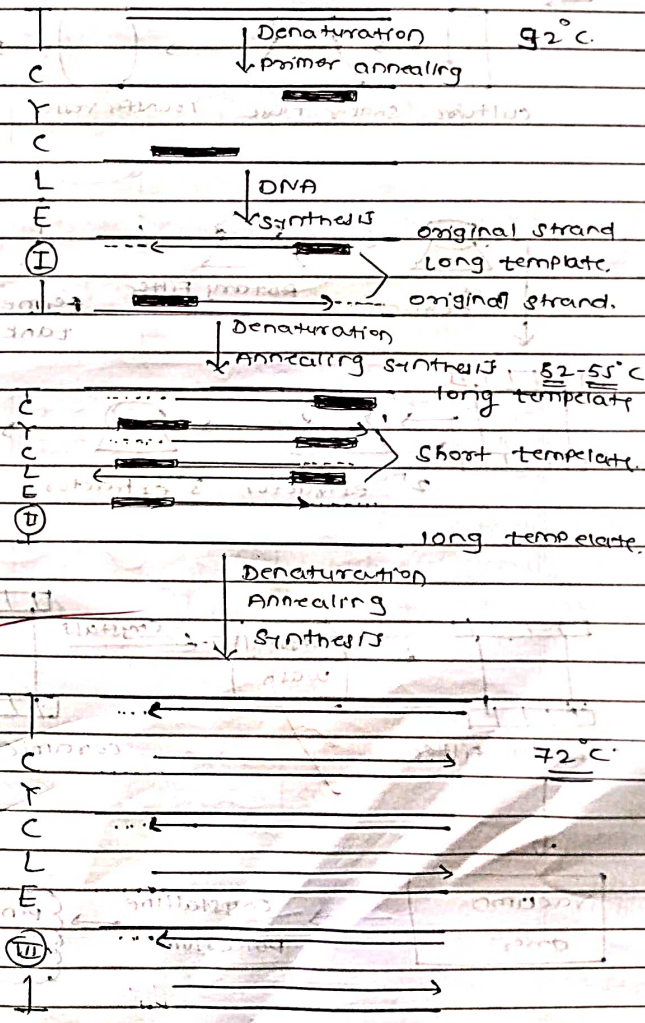 Denaturation 92°C.
primer annealing
CYCLE
I
DNA
synthesis
original strand
Long template.
original strand.
Denaturation
Annealing synthesis. 52-55°C
long tempelate
CYCLE
II
short tempelate.
long tempelate.
Denaturation
Annealing
synthesis
CYCLE
III
72°C.